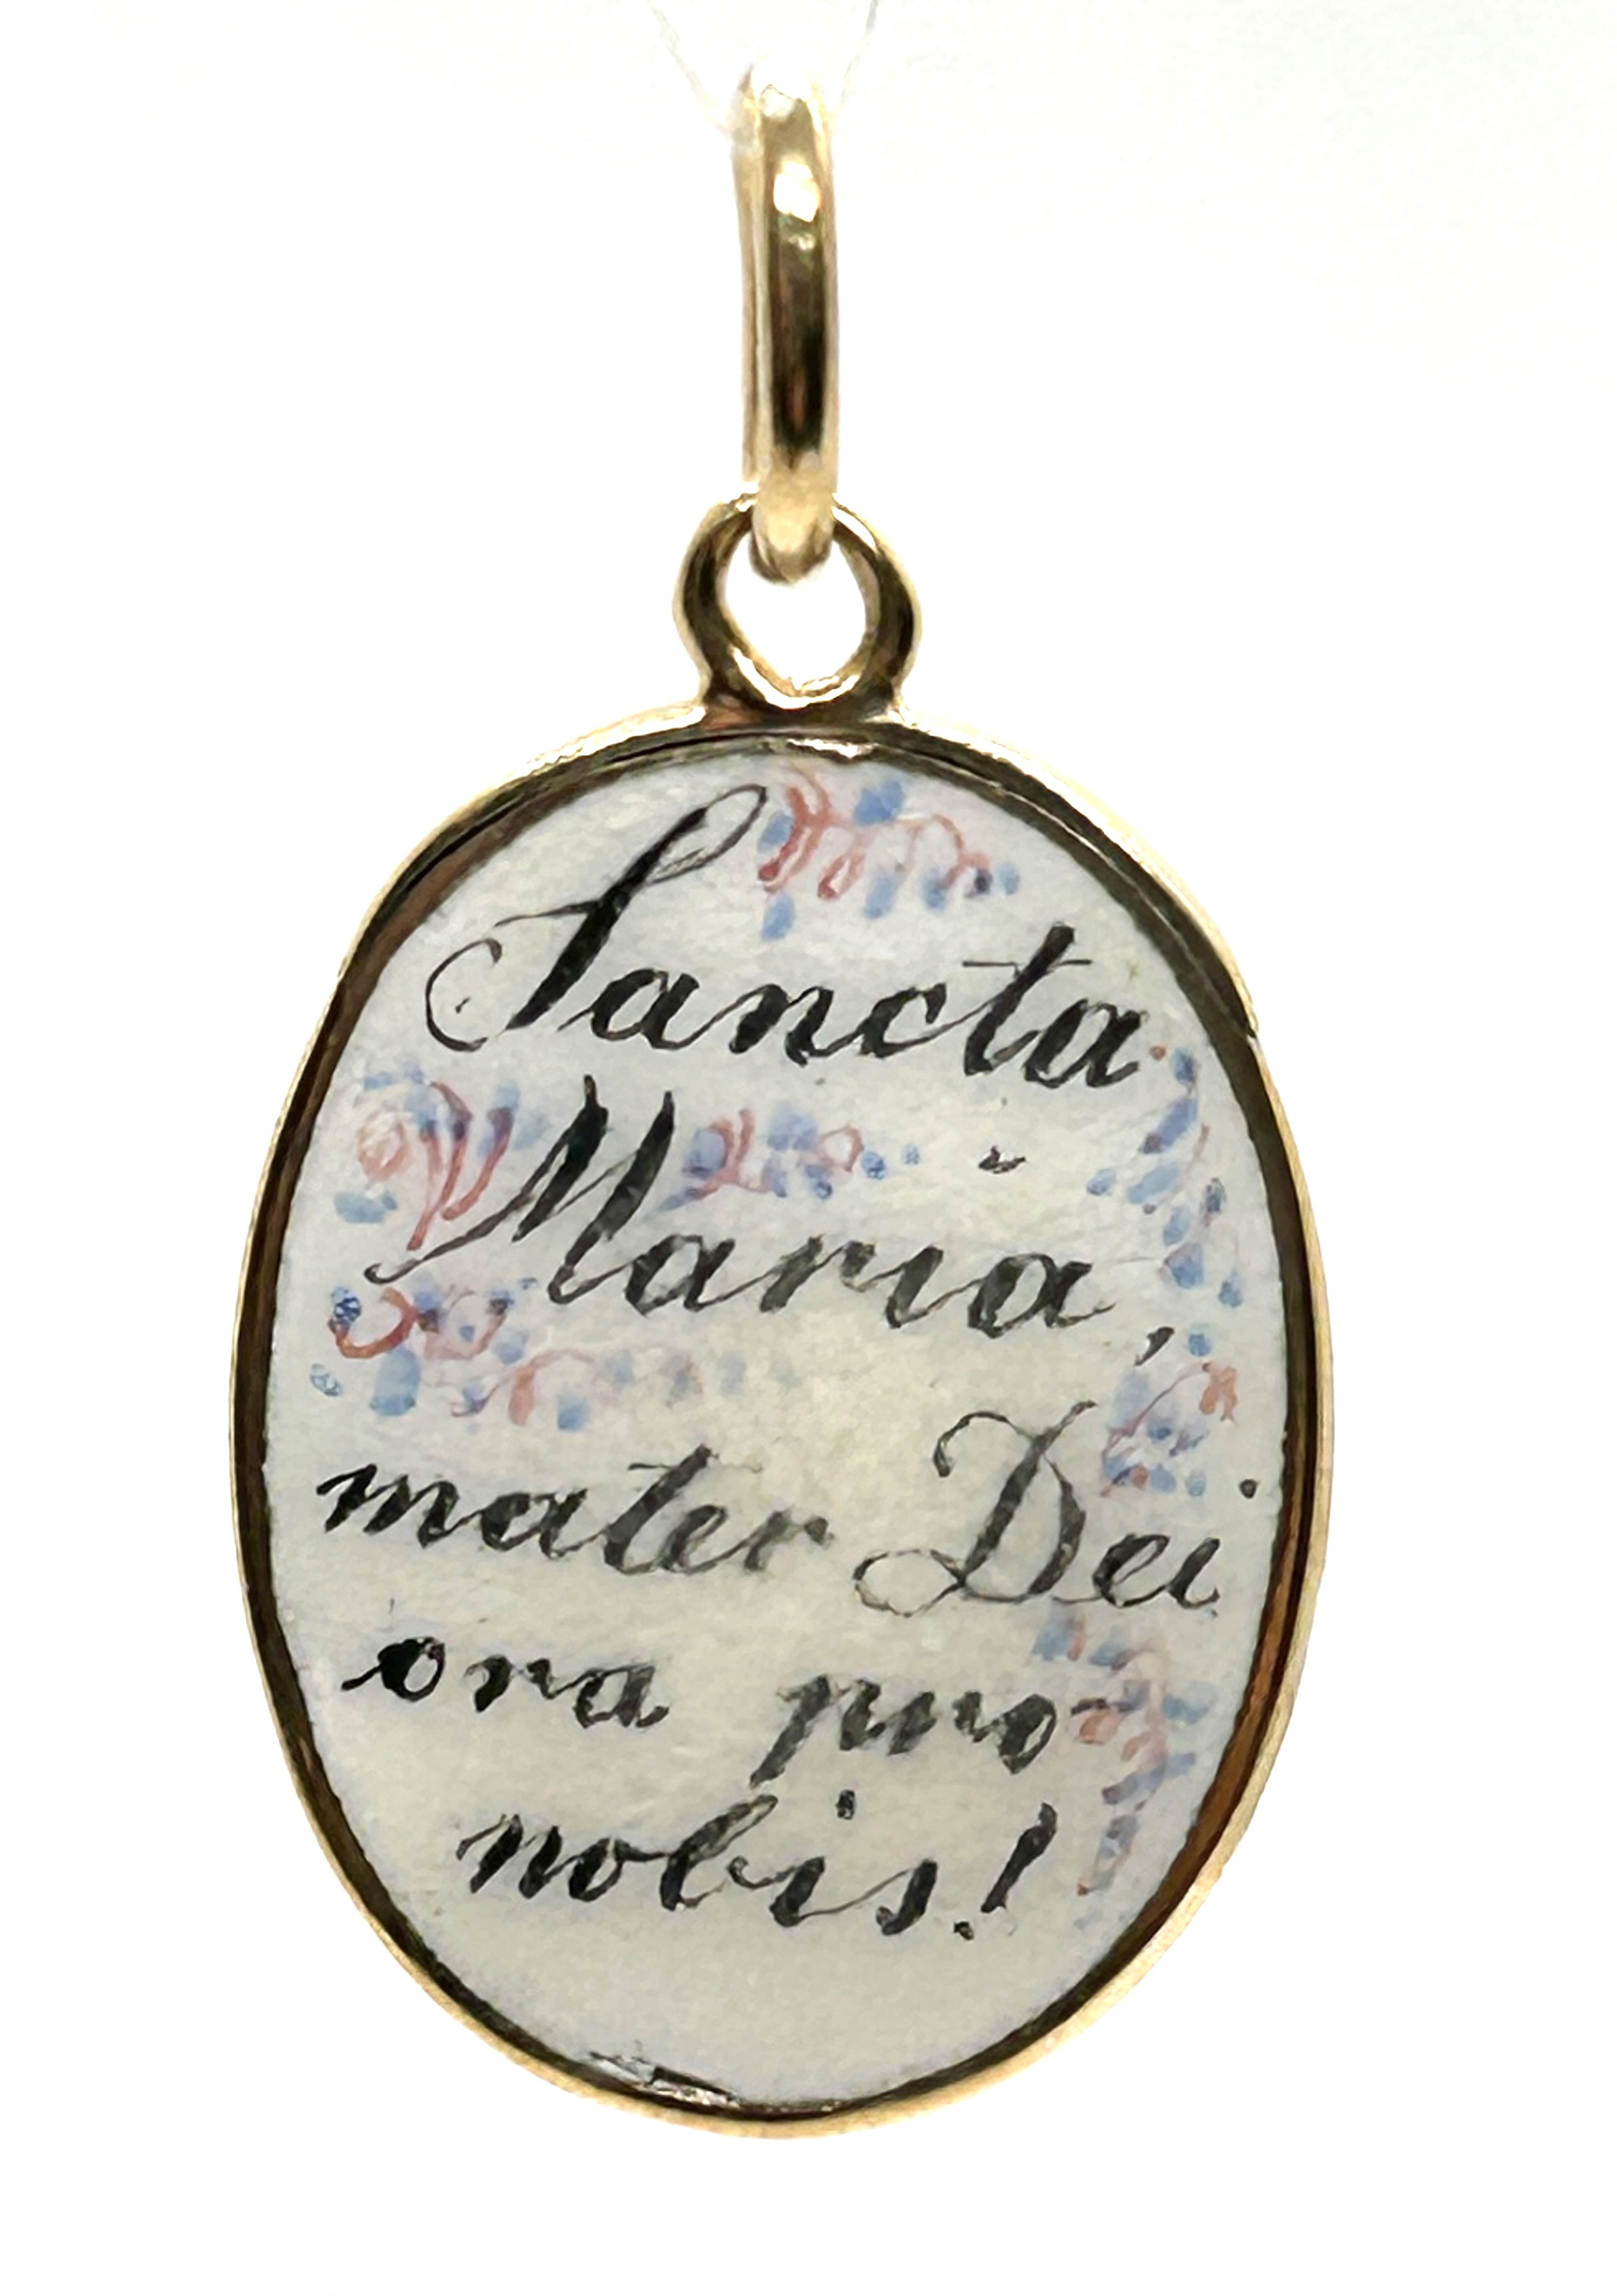 Sancta
Maria,
mater Dei
ora pro
nobis!